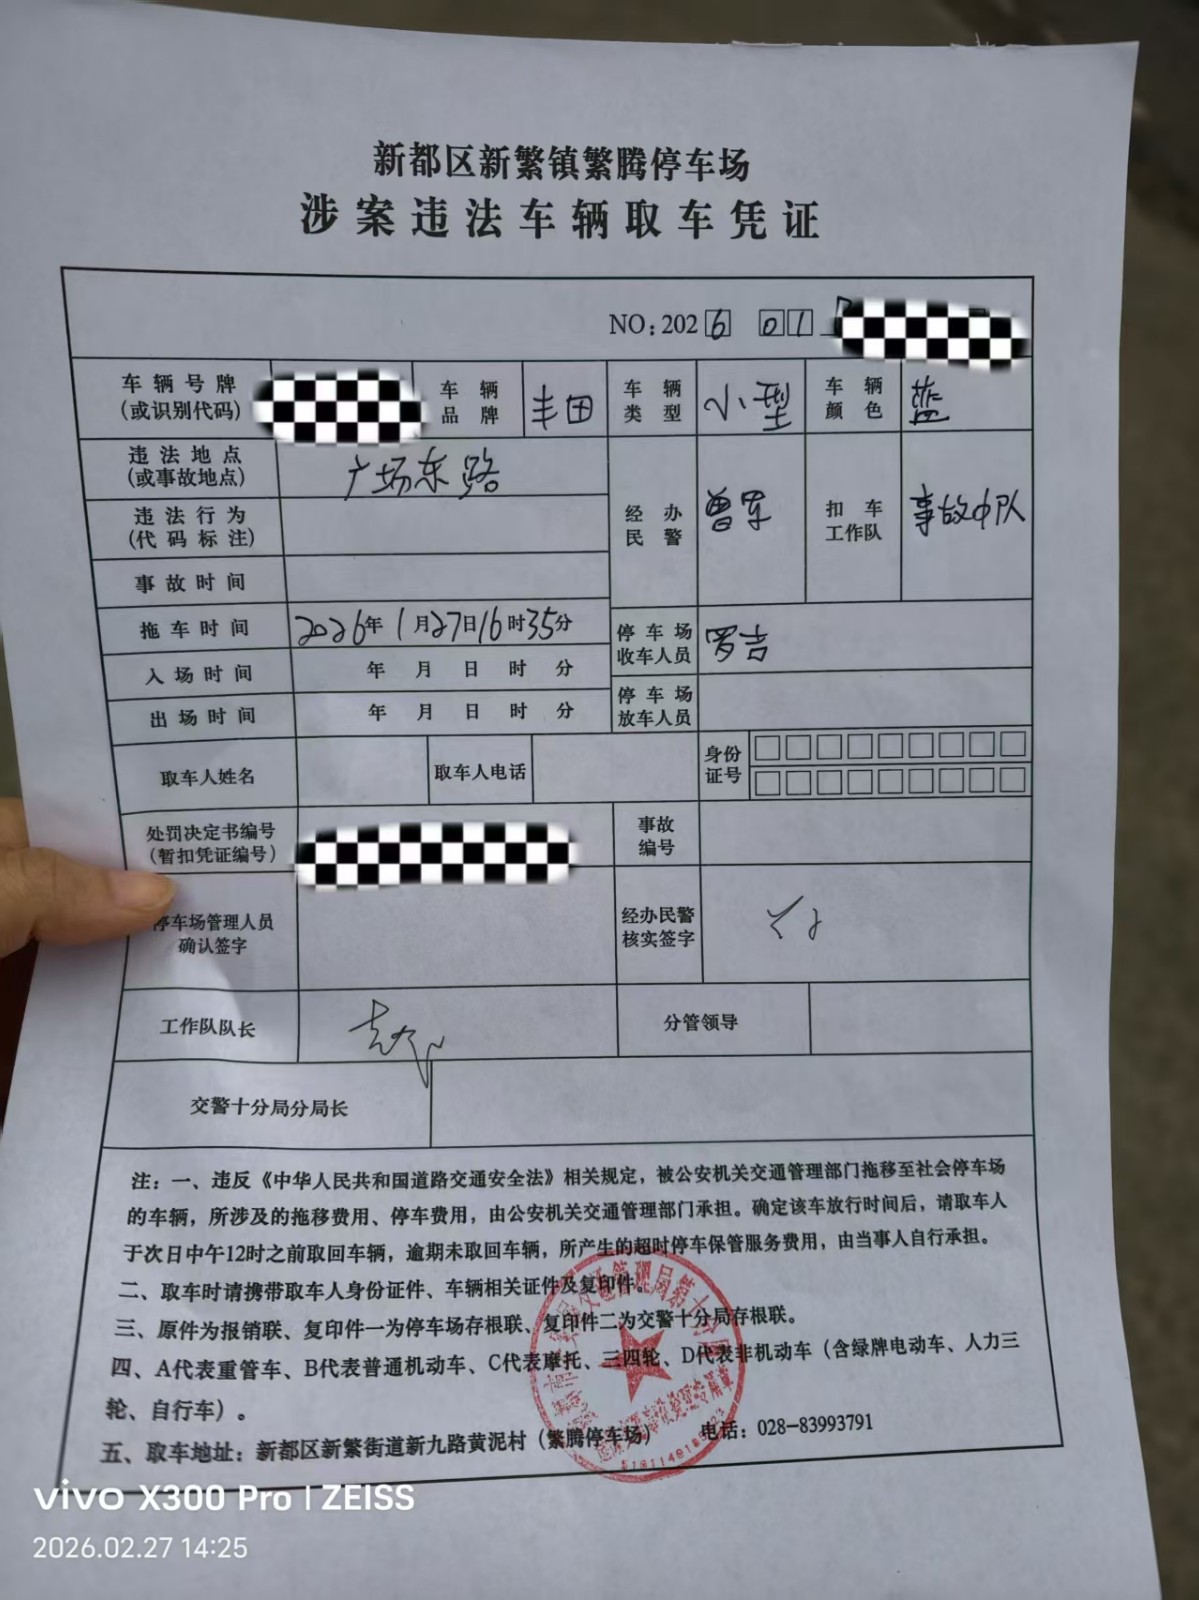 新都区新繁镇繁腾停车场
涉案违法车辆取车凭证
NO:2026 01
车辆号牌
(或识别代码)
车辆
品牌
丰田
车辆
类型
小型
车辆
颜色
蓝
违法地点
(或事故地点)
广场东路
经办
民警
曾军
扣车
工作队
事故中队
违法行为
(代码标注)
事故时间
拖车时间
2026年1月27日16时35分
停车场
收车人员
罗吉
入场时间
年 月 日 时 分
停车场
放车人员
出场时间
年 月 日 时 分
取车人姓名
取车人电话
身份
证号
处罚决定书编号
(暂扣凭证编号)
事故
编号
停车场管理人员
确认签字
经办民警
核实签字
工作队队长
分管领导
交警十分局分局长
注：一、违反《中华人民共和国道路交通安全法》相关规定，被公安机关交通管理部门拖移至社会停车场
的车辆，所涉及的拖移费用、停车费用，由公安机关交通管理部门承担。确定该车放行时间后，请取车人
于次日中午12时之前取回车辆，逾期未取回车辆，所产生的超时停车保管服务费用，由当事人自行承担。
二、取车时请携带取车人身份证件、车辆相关证件及复印件。
三、原件为报销联、复印件一为停车场存根联、复印件二为交警十分局存根联。
四、A代表重管车、B代表普通机动车、C代表摩托、三四轮、D代表非机动车（含绿牌电动车、人力三
轮、自行车）。
五、取车地址：新都区新繁街道新九路黄泥村（繁腾停车场） 电话：028-83993791
vivo X300 Pro | ZEISS
2026.02.27 14:25